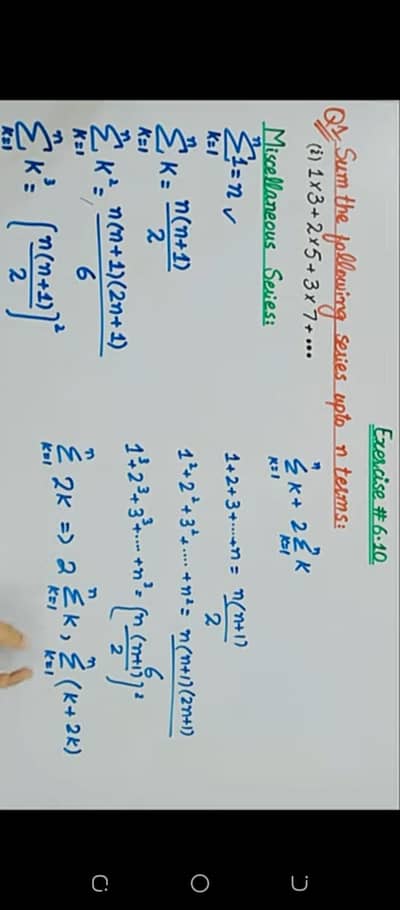 Exercise # 6.10
Q1. Sum the following series upto n terms:
(i) 1×3+2×5+3×7+...
Miscellaneous Series:
n∑k=1 1 = n ✓
n∑k=1 k = n(n+1)/2
n∑k=1 k² = n(n+1)(2n+1)/6
n∑k=1 k³ = [n(n+1)/2]²
n∑k=1 k + 2 n∑k=1 k
1+2+3+....+n = n(n+1)/2
1²+2²+3²+.....+n² = n(n+1)(2n+1)/6
1³+2³+3³+....+n³ = [n(n+1)/2]²
n∑k=1 2k => 2 n∑k=1 k, n∑k=1 (k+2k)